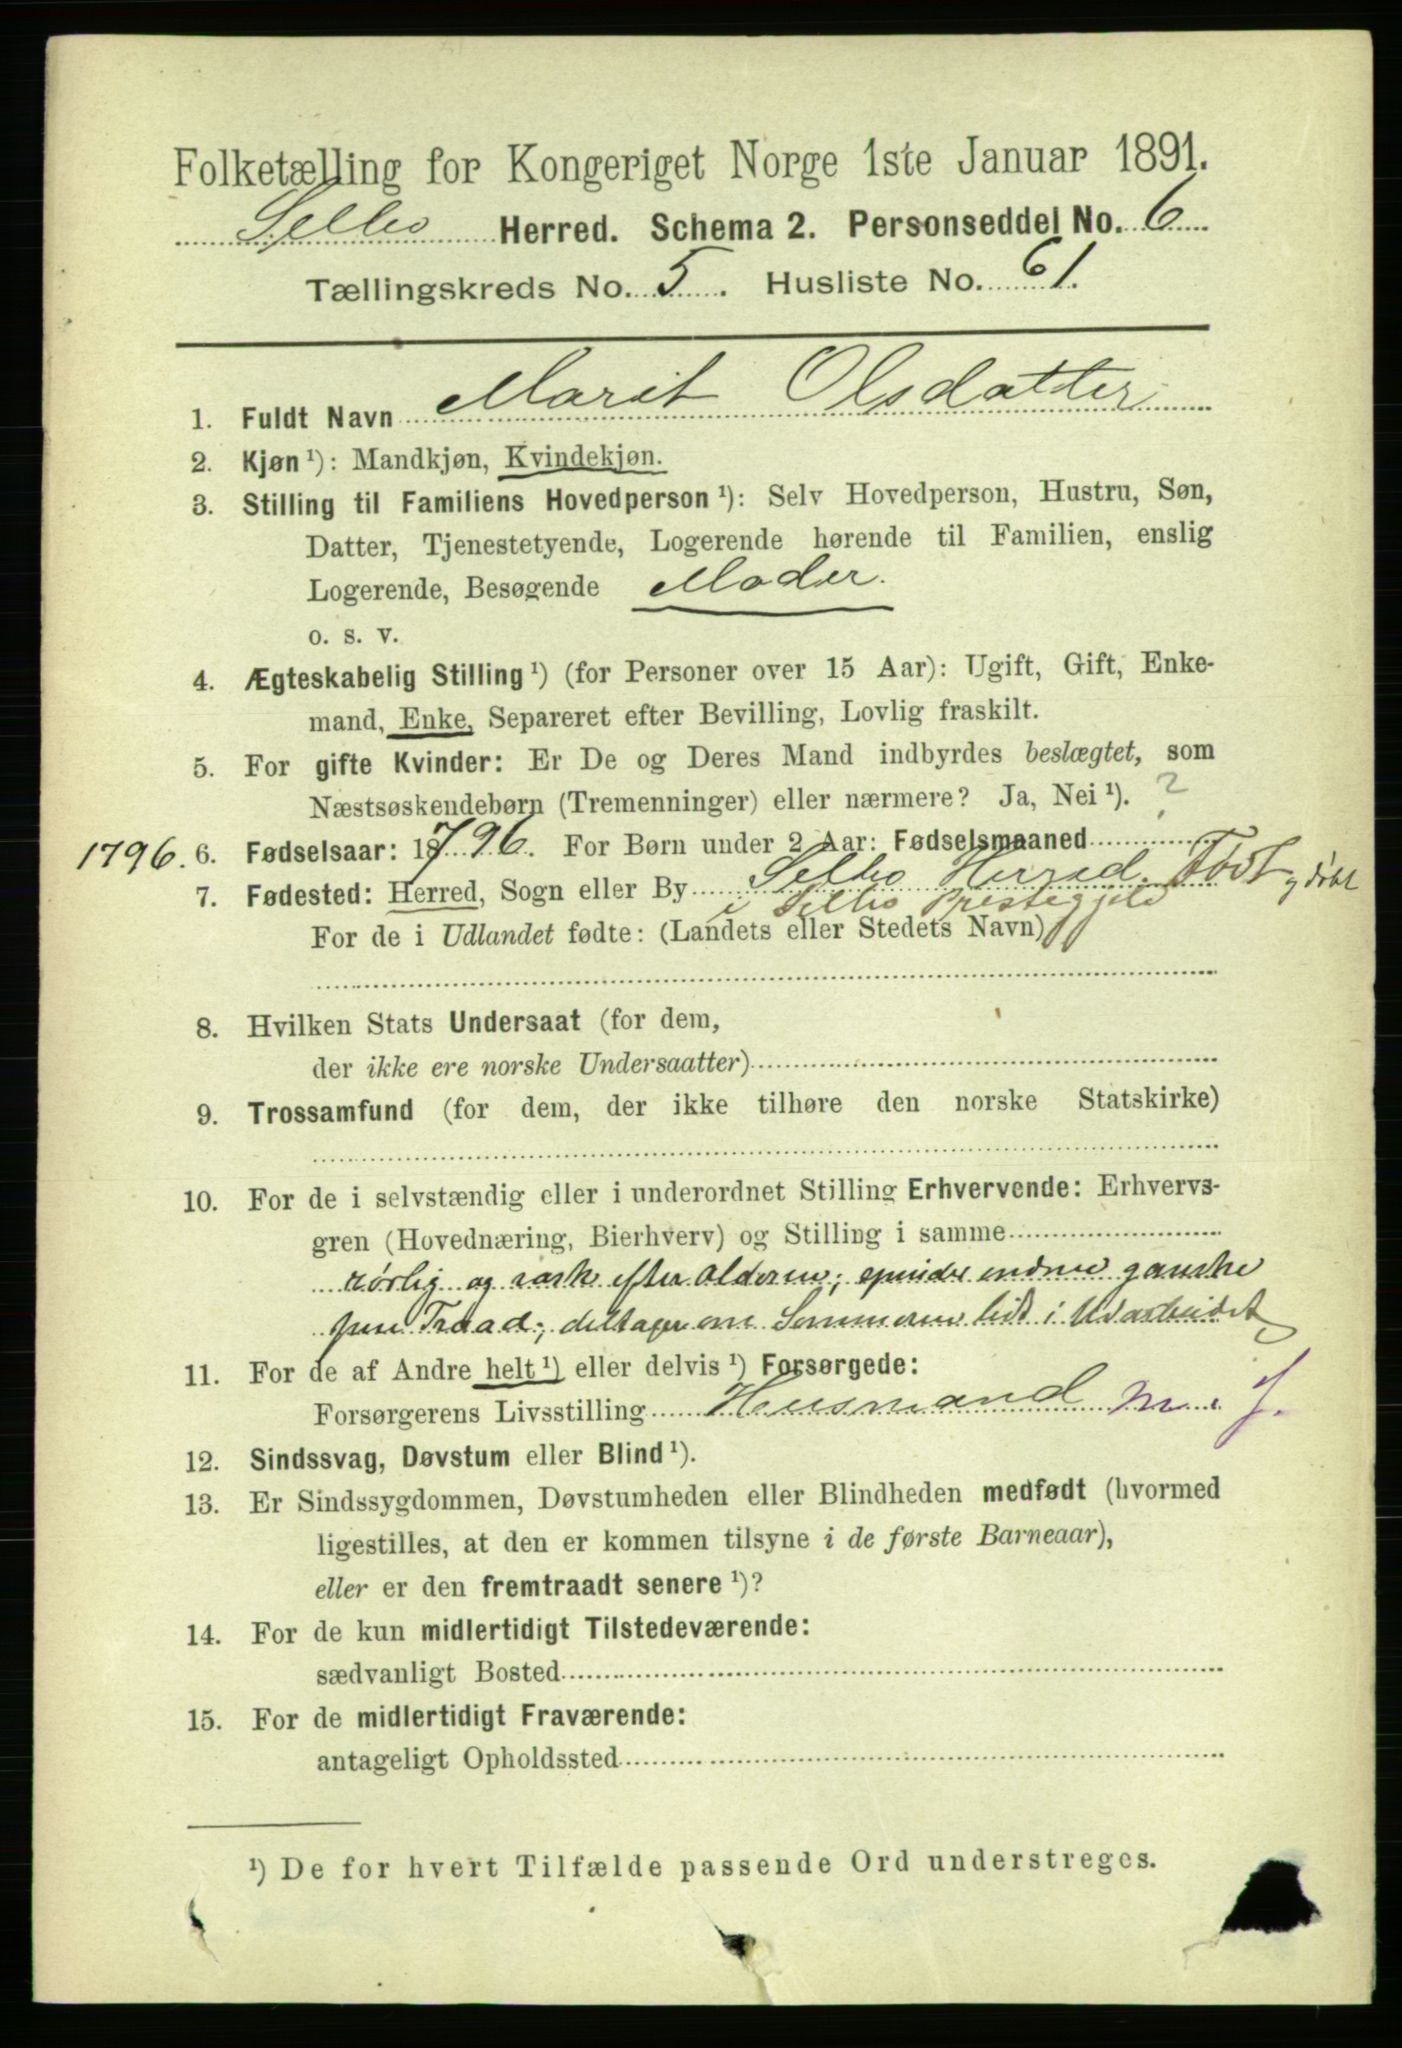 Folketælling for Kongeriget Norge 1ste Januar 1891.
Selbo Herred. Schema 2. Personseddel No. 6
Tællingskreds No. 5. Husliste No. 61.
1. Fuldt Navn Marit Olsdatter
2. Kjøn ¹): Mandkjøn, Kvindekjøn.
3. Stilling til Familiens Hovedperson ¹): Selv Hovedperson, Hustru, Søn,
Datter, Tjenestetyende, Logerende hørende til Familien, enslig
Logerende, Besøgende Moder.
o. s. v.
4. Ægteskabelig Stilling ¹) (for Personer over 15 Aar): Ugift, Gift, Enke-
mand, Enke, Separeret efter Bevilling, Lovlig fraskilt.
5. For gifte Kvinder: Er De og Deres Mand indbyrdes beslægtet, som
Næstsøskendebørn (Tremenninger) eller nærmere? Ja, Nei ¹). ?
1796. 6. Fødselsaar: 18 796. For Børn under 2 Aar: Fødselsmaaned
7. Fødested: Herred, Sogn eller By Selbo Herred. Født og døbt
i Selbo Prestegjeld
For de i Udlandet fødte: (Landets eller Stedets Navn)
8. Hvilken Stats Undersaat (for dem,
der ikke ere norske Undersaatter)
9. Trossamfund (for dem, der ikke tilhøre den norske Statskirke)
10. For de i selvstændig eller i underordnet Stilling Erhvervende: Erhvervs-
gren (Hovednæring, Bierhverv) og Stilling i samme
rørlig og rask efter Alderen; spinder endnu ganske
pen Traad; deltager om Sommeren lidt i Udarbeidet
11. For de af Andre helt ¹) eller delvis ¹) Forsørgede:
Forsørgerens Livsstilling Husmand m. J.
12. Sindssvag, Døvstum eller Blind ¹).
13. Er Sindssygdommen, Døvstumheden eller Blindheden medfødt (hvormed
ligestilles, at den er kommen tilsyne i de første Barneaar),
eller er den fremtraadt senere ¹)?
14. For de kun midlertidigt Tilstedeværende:
sædvanligt Bosted
15. For de midlertidigt Fraværende:
antageligt Opholdssted
¹) De for hvert Tilfælde passende Ord understreges.